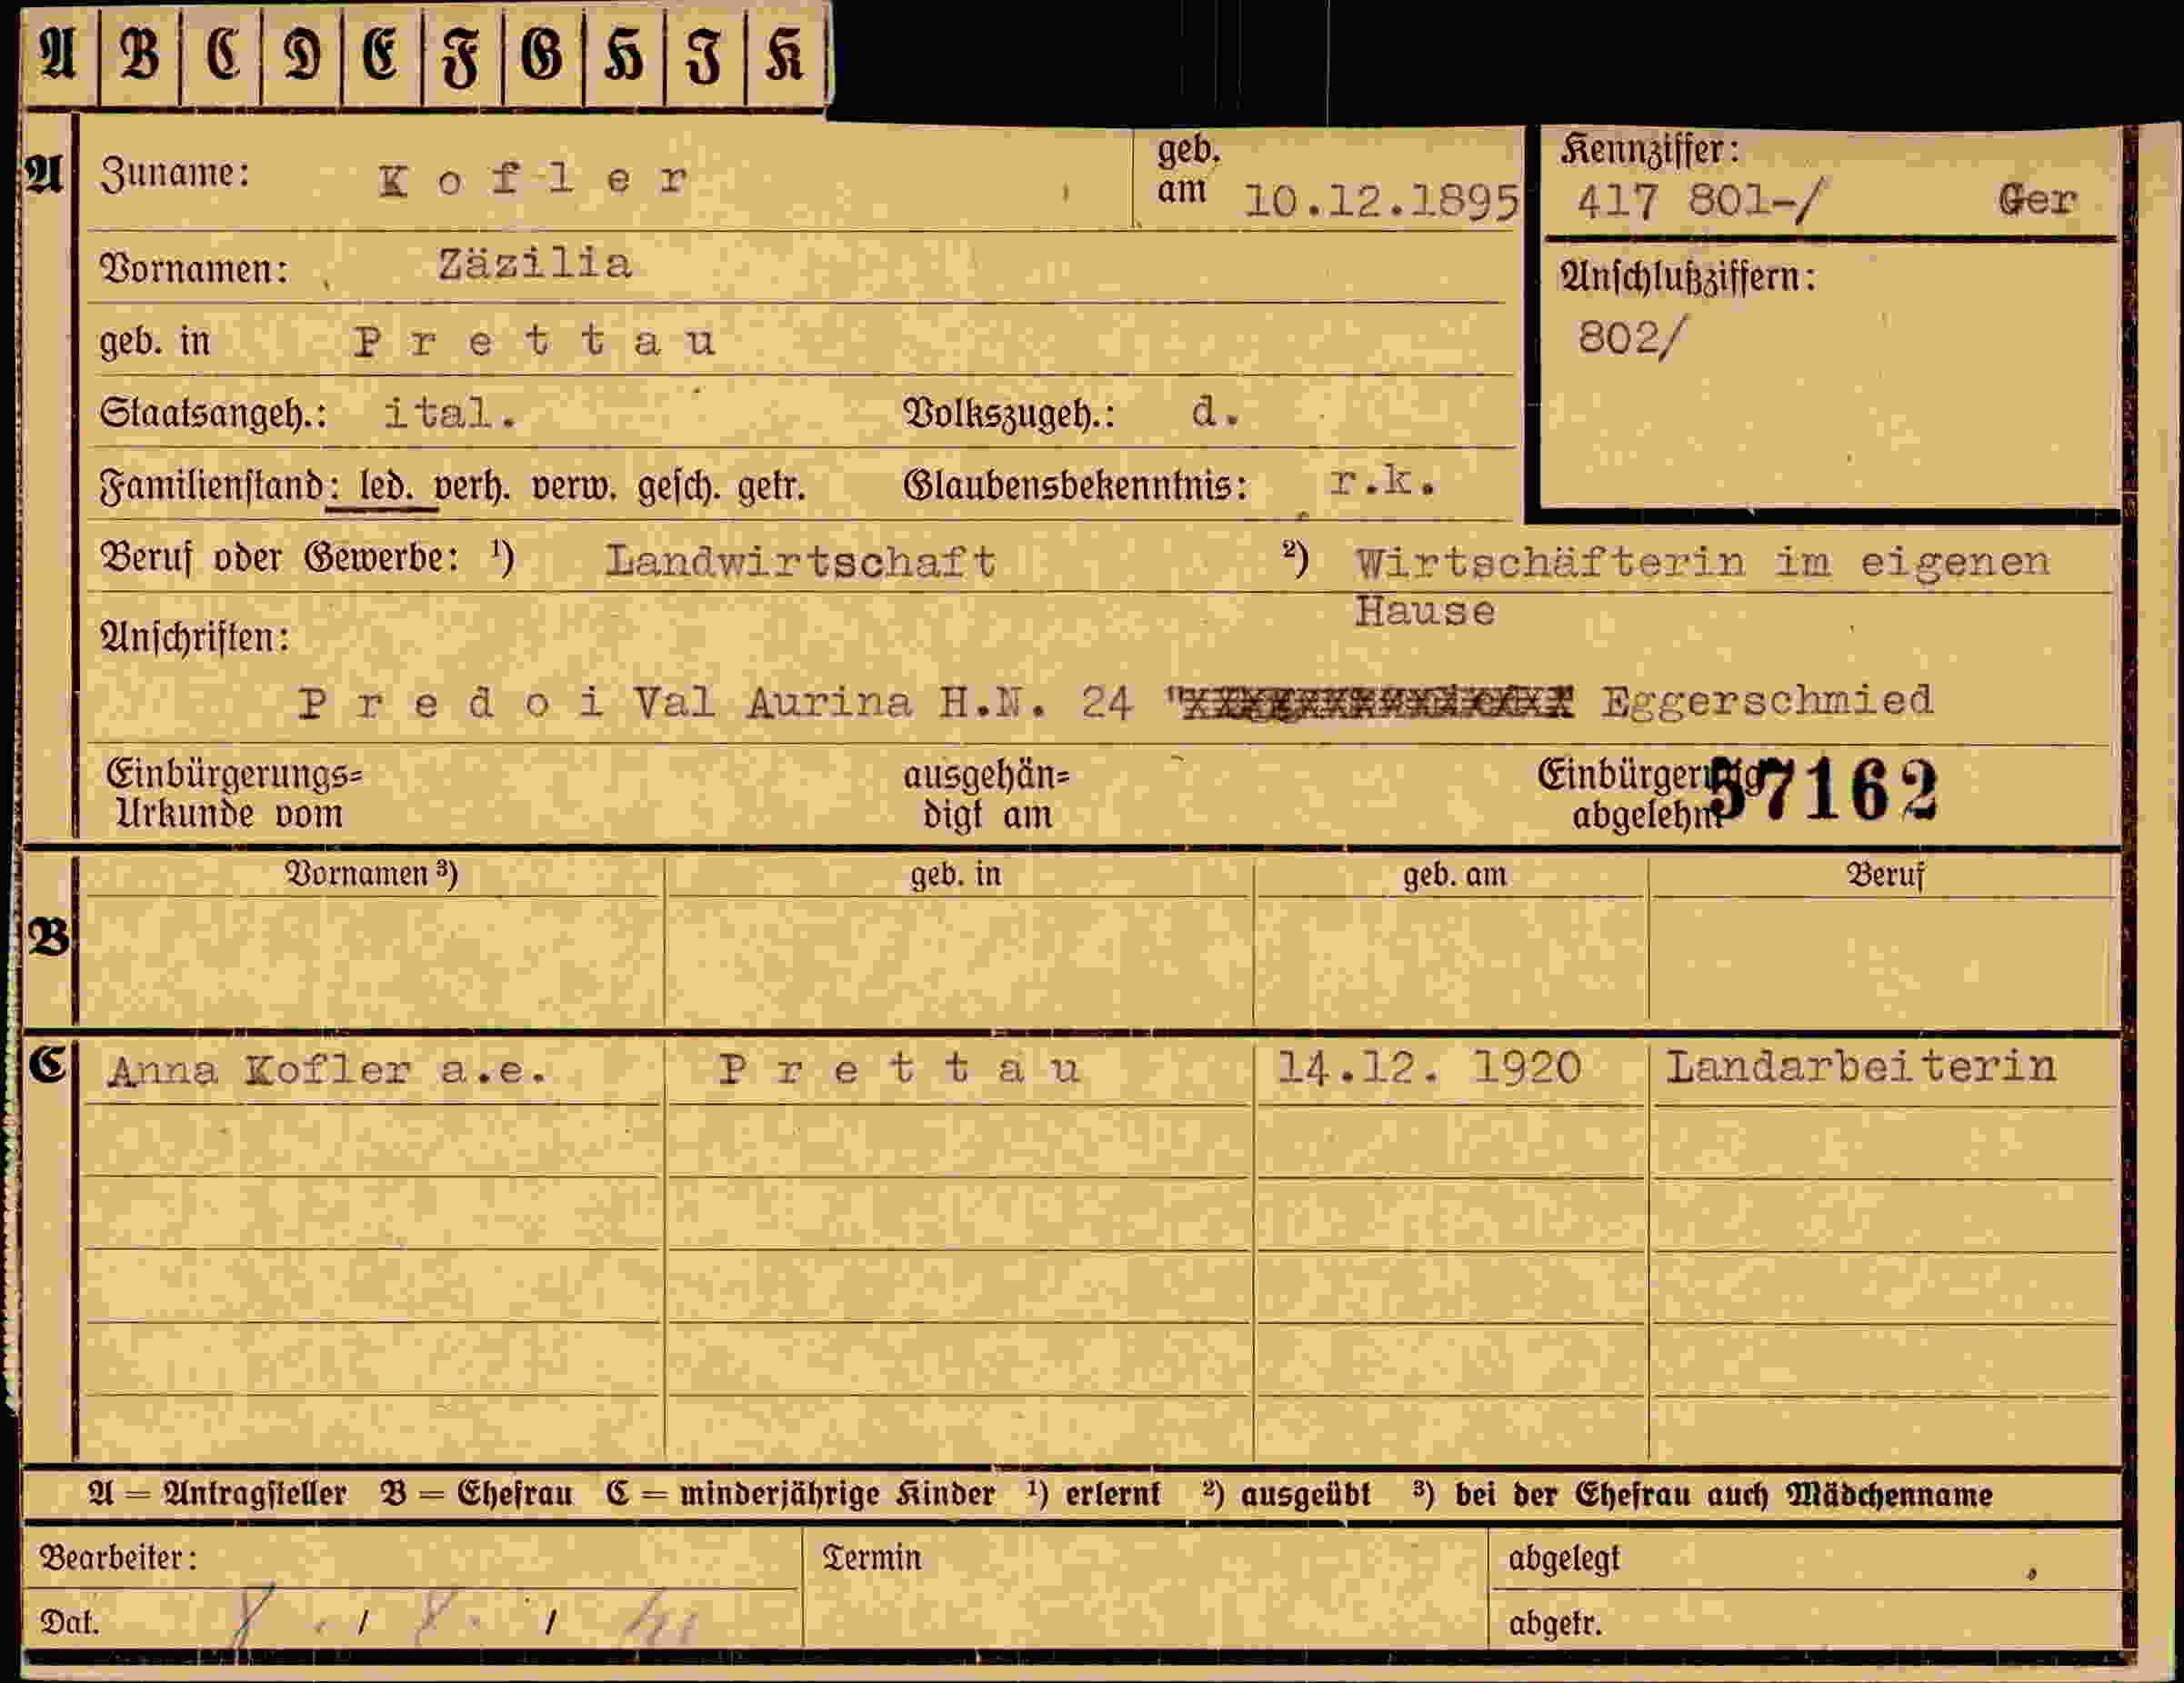 A B C D E F G H I K
A Zuname: Kofler geb. am 10.12.1895 Kennziffer:
417 801-/ Ger
Vornamen: Zäzilia Anschlußziffern:
geb. in Prettau 802/
Staatsangeh.: ital. Volkszugeh.: d.
Familienstand: led. verh. verw. gesch. getr. Glaubensbekenntnis: r.k.
Beruf oder Gewerbe: ¹) Landwirtschaft ²) Wirtschäfterin im eigenen
Hause
Anschriften:
Predoi Val Aurina H.N. 24 " Eggerschmied
Einbürgerungs= ausgehän= Einbürgerung 57162
Urkunde vom digt am abgelehnt
B Vornamen ³) geb. in geb. am Beruf
C Anna Kofler a.e. Prettau 14.12. 1920 Landarbeiterin
A = Antragsteller B = Ehefrau C = minderjährige Kinder ¹) erlernt ²) ausgeübt ³) bei der Ehefrau auch Mädchenname
Bearbeiter: Termin abgelegt
Dat. 8. / 8. / abgetr.